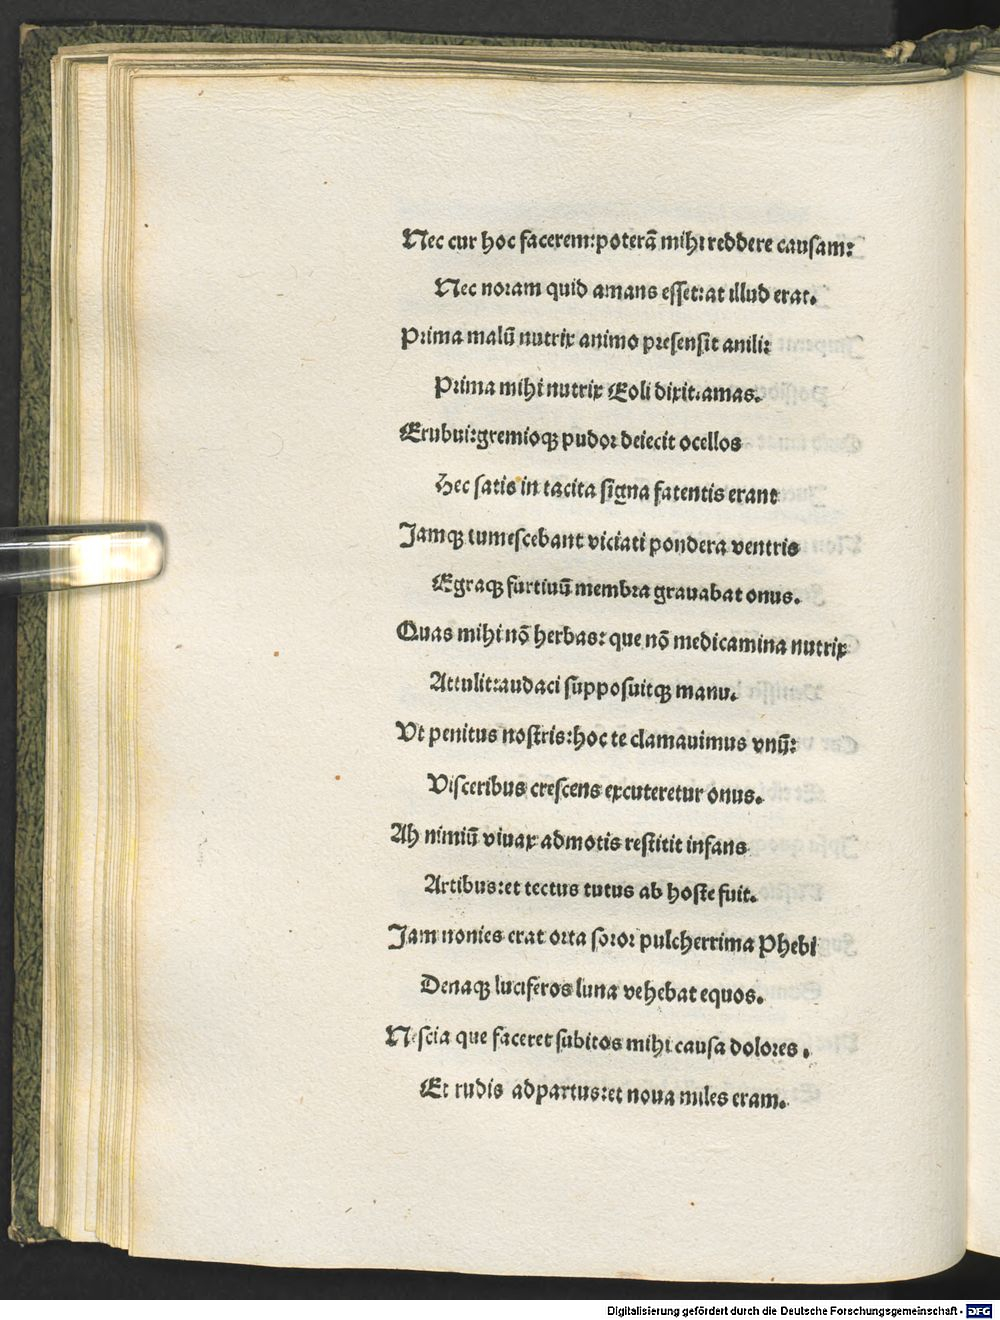 Nec cur hoc facerem:poterā mihi reddere causam:
Nec noram quid amans esset:at illud erat.
Prima malū nutrix animo presensit anili:
Prima mihi nutrix Eoli dixit:amas.
Erubui:gremioqꝫ pudor deiecit ocellos
Hec satis in tacita signa fatentis erant
Jamqꝫ tumescebant viciati pondera ventris
Egraqꝫ furtiuū membra grauabat onus.
Quas mihi nō herbas: que nō medicamina nutrix
Attulit:audaci supposuitqꝫ manu.
Vt penitus nostris:hoc te clamauimus vnū:
Visceribus crescens excuteretur onus.
Ah nimiū viuax admotis restitit infans
Artibus:et tectus tutus ab hoste fuit.
Jam nonies erat orta soror pulcherrima Phebi
Denaqꝫ luciferos luna vehebat equos.
Nescia que faceret subitos mihi causa dolores.
Et rudis ad partus:et noua miles eram.
Digitalisierung gefördert durch die Deutsche Forschungsgemeinschaft - DFG